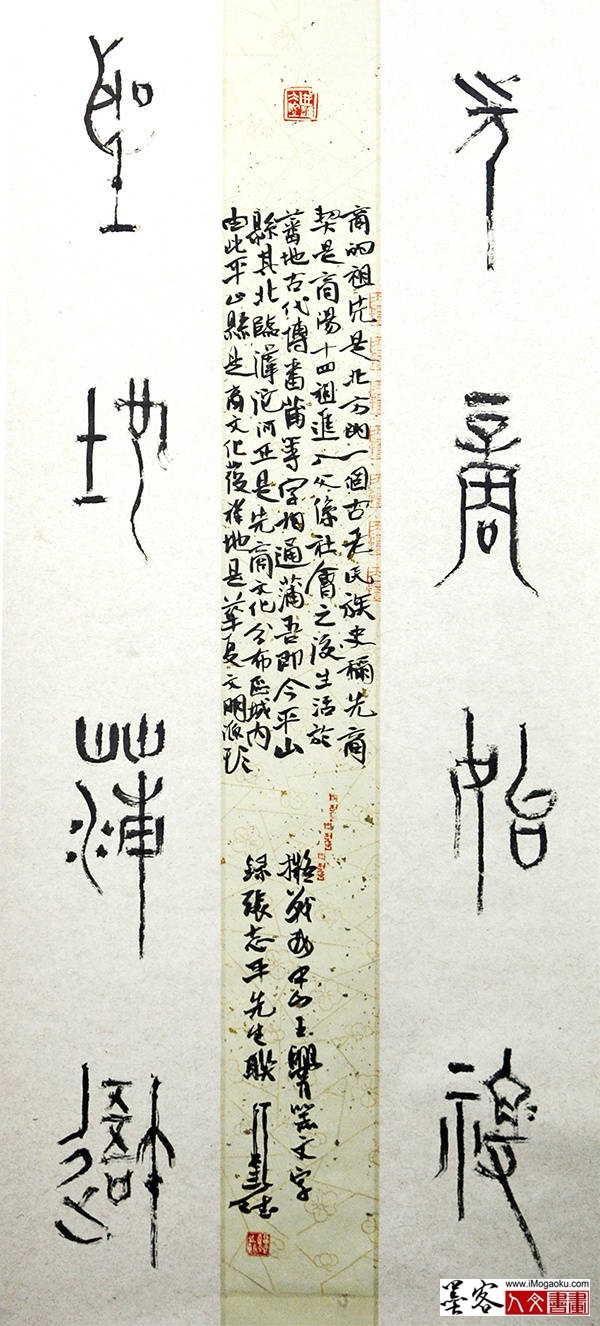 先商始祖
聖地蒲
商的祖先是北方的一個古老民族史稱先商
契是商湯十四祖進入父係社會之後生活於
蕃地古代博番蒲等字相通蒲吾即今平山
縣其北臨滹沱河正是先商文化分布區域内
由此平山縣是商文化發祥地是華夏文明
擬戰國中山王器文字
錄張志平先生聯
墨客
www.iMogaoku.com
人文書畫